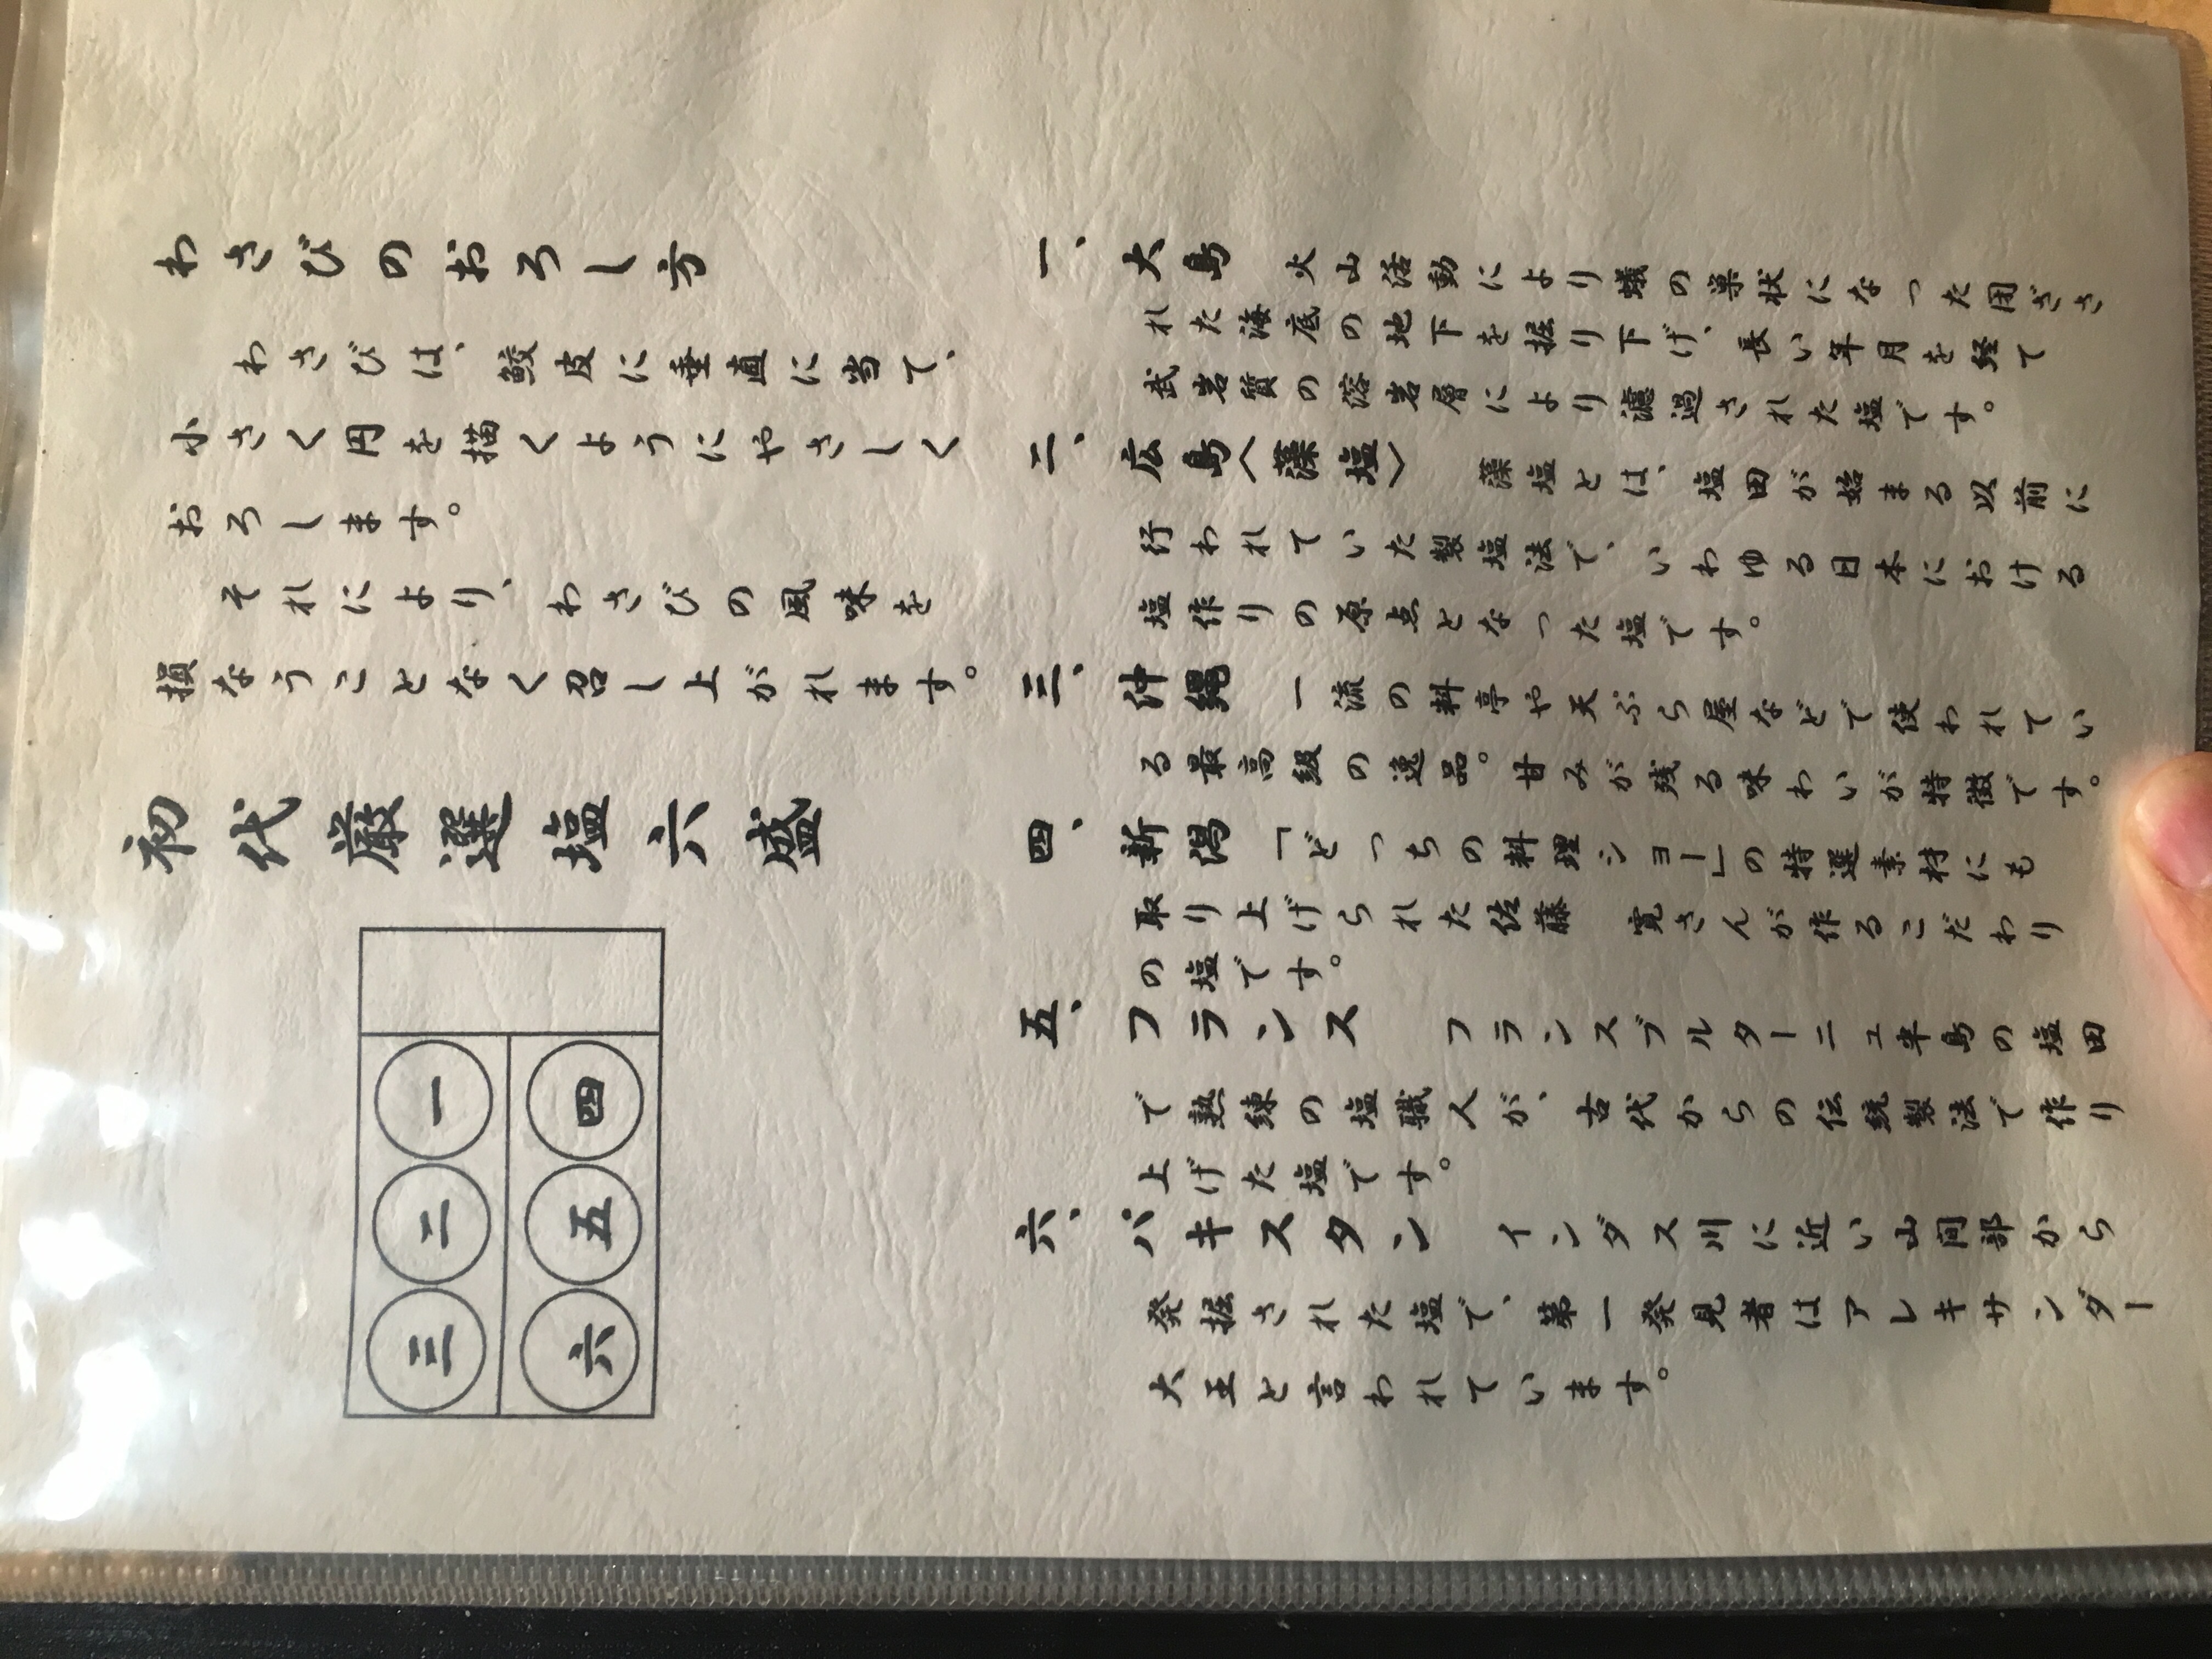 わさびのおろし方
わさびは、鮫皮に垂直に当て、
小さく円を描くようにやさしく
おろします。
それにより、わさびの風味を
損なうことなく召し上がれます。
初代厳選塩六盛
一 四
二 五
三 六
一、大島 火山活動により蟻の巣状になった閉ざさ
れた海底の地下を掘り下げ、長い年月を経て
武岩質の溶岩層により濾過された塩です。
二、広島〈藻塩〉 藻塩とは、塩田が始まる以前に
行われていた製塩法で、いわゆる日本における
塩作りの原点となった塩です。
三、沖縄 一流の料亭や天ぷら屋などで使われてい
る最高級の逸品。甘みが残る味わいが特徴です。
四、新潟 「どっちの料理ショー」の特選素材にも
取り上げられた佐藤 寛さんが作るこだわり
の塩です。
五、フランス フランスブルターニュ半島の塩田
で熟練の塩職人が、古代からの伝統製法で作り
上げた塩です。
六、パキスタン インダス川に近い山間部から
発掘された塩で、第一発見者はアレキサンダー
大王と言われています。